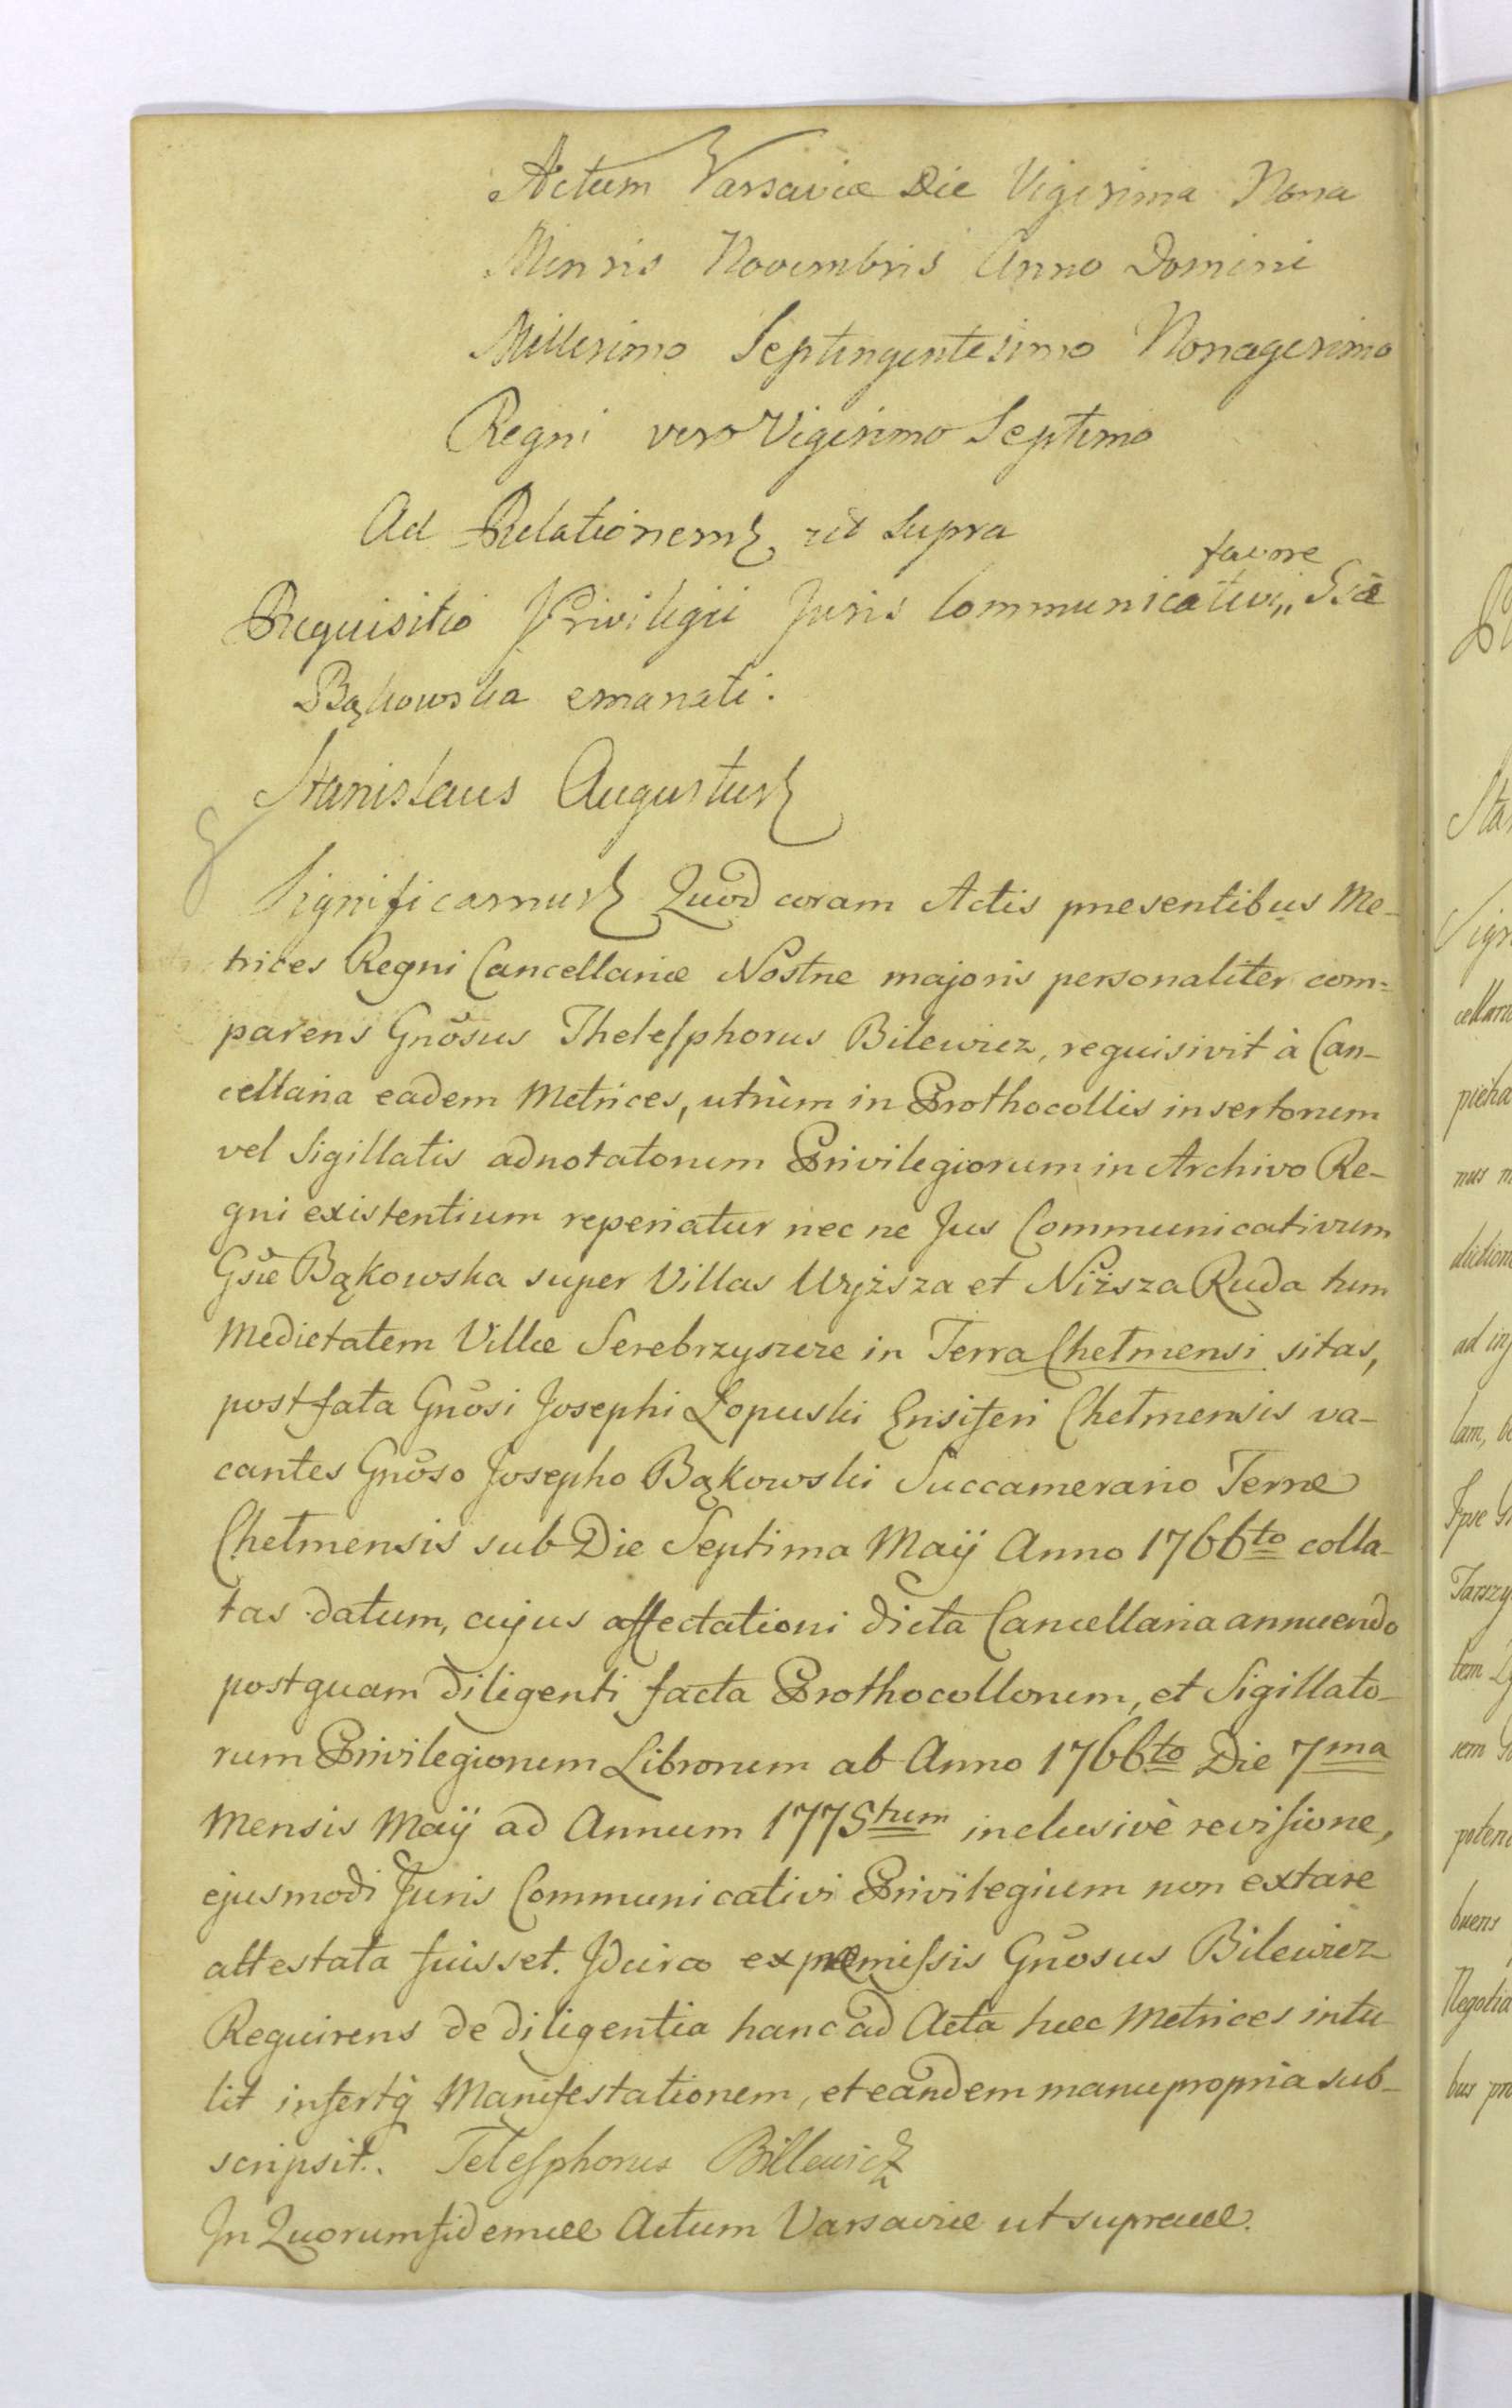 Actum Varsaviæ Die Vigesima Nona
Mensis Novembris Anno Domini
Millesimo Septingentesimo Nonagesimo
Regni vero Vigesimo Septimo
Ad Relationem ut supra
favore
Requisitio Privilegii Juris Communicativi,, Gsæ
Bąkowska emanati.
Stanislaus Augustus
Significamus Quod coram Actis præsentibus Me-
trices Regni Cancellariæ Nostræ majoris personaliter com=
parens Gnõsus Thelesphorus Bilewicz, requisivit à Can-
cellaria eadem Metrices, utrùm in Prothocollis insertorum
vel Sigillatis adnotatorum Privilegiorum in Archivo Re-
gni existentium reperiatur nec ne Jus Communicativum
Gsæ Bąkowska super Villas Wyższa et Niższa Ruda tum
Medietatem Villæ Serebrzyszcze in Terra Chełmensi sitas,
post fata Gnõsi Josephi Łopuski Ensiferi Chełmensis va-
cantes Gnõso Josepho Bąkowski Succamerario Terræ
Chełmensis sub Die Septima Maÿ Anno 1766to colla-
tas datum, cujus affectationi dicta Cancellaria annuendo
postquam diligenti facta Prothocollorum, et Sigillato-
rum Privilegiorum Librorum ab Anno 1766to Die 7ma
Mensis Maÿ ad Annum 1775tum inclusivè revisione,
ejusmodi Juris Communicativi Privilegium non extare
attestata fuisset. Idcirco ex præmissis Gnõsus Bilewicz
Requirens de diligentia hanc ad Acta hæc Metrices intu-
lit insertq̃ Manifestationem, et eandem manu propria sub-
scripsit. Telesphorus Billewicz
In Quorum fidem Actum Varsaviæ ut supra